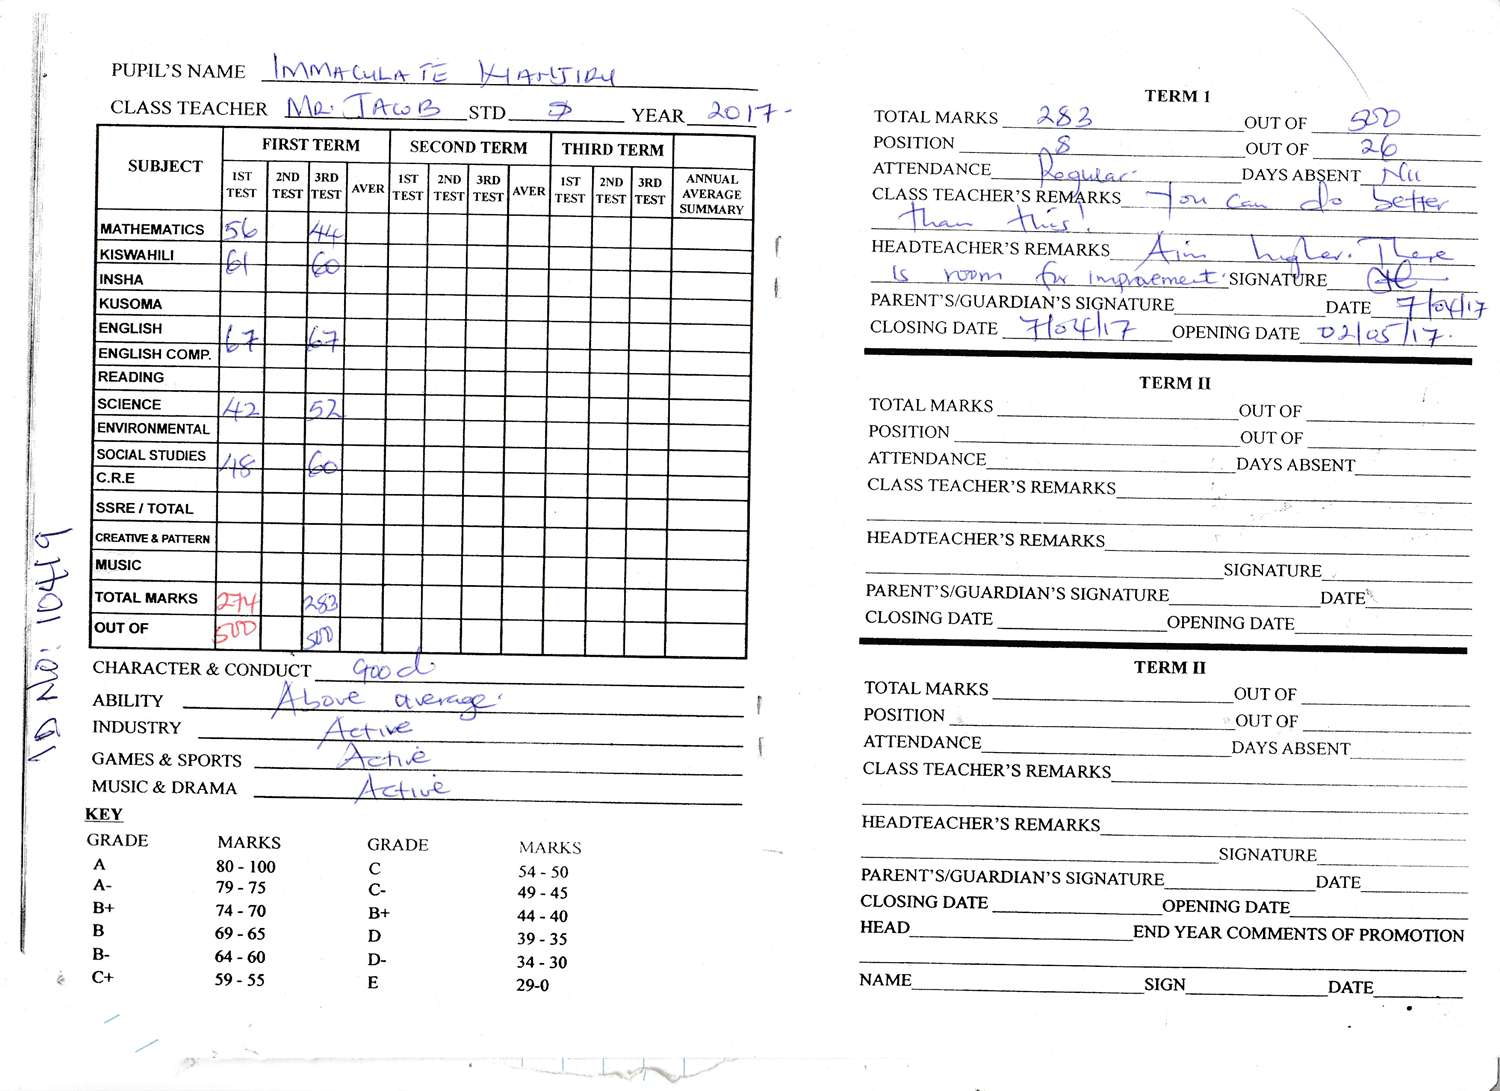 PUPIL'S NAME IMMACULATE WANJIRU
CLASS TEACHER MR. JACOB STD YEAR 2017-
SUBJECT FIRST TERM SECOND TERM THIRD TERM
1ST TEST 2ND TEST 3RD TEST AVER 1ST TEST 2ND TEST 3RD TEST AVER 1ST TEST 2ND TEST 3RD TEST ANNUAL AVERAGE SUMMARY
MATHEMATICS 56 44
KISWAHILI 61 60
INSHA
KUSOMA
ENGLISH 67 67
ENGLISH COMP.
READING
SCIENCE 42 52
ENVIRONMENTAL
SOCIAL STUDIES 48 60
C.R.E
SSRE / TOTAL
CREATIVE & PATTERN
MUSIC
TOTAL MARKS 274 283
OUT OF 500 500
CHARACTER & CONDUCT Good
ABILITY Above average.
INDUSTRY Active
GAMES & SPORTS Active
MUSIC & DRAMA Active
KEY
GRADE MARKS GRADE MARKS
A 80 - 100 C 54 - 50
A- 79 - 75 C- 49 - 45
B+ 74 - 70 B+ 44 - 40
B 69 - 65 D 39 - 35
B- 64 - 60 D- 34 - 30
C+ 59 - 55 E 29-0
ID No: 10419
TERM 1
TOTAL MARKS 283 OUT OF 500
POSITION 8 OUT OF 26
ATTENDANCE Regular. DAYS ABSENT Nil
CLASS TEACHER'S REMARKS You can do better
than this!
HEADTEACHER'S REMARKS Aim higher. There
is room for improvement. SIGNATURE
PARENT'S/GUARDIAN'S SIGNATURE DATE 7/04/17
CLOSING DATE 7/04/17 OPENING DATE 02/05/17.
TERM II
TOTAL MARKS OUT OF
POSITION OUT OF
ATTENDANCE DAYS ABSENT
CLASS TEACHER'S REMARKS
HEADTEACHER'S REMARKS
SIGNATURE
PARENT'S/GUARDIAN'S SIGNATURE DATE
CLOSING DATE OPENING DATE
TERM II
TOTAL MARKS OUT OF
POSITION OUT OF
ATTENDANCE DAYS ABSENT
CLASS TEACHER'S REMARKS
HEADTEACHER'S REMARKS
SIGNATURE
PARENT'S/GUARDIAN'S SIGNATURE DATE
CLOSING DATE OPENING DATE
HEAD END YEAR COMMENTS OF PROMOTION
NAME SIGN DATE